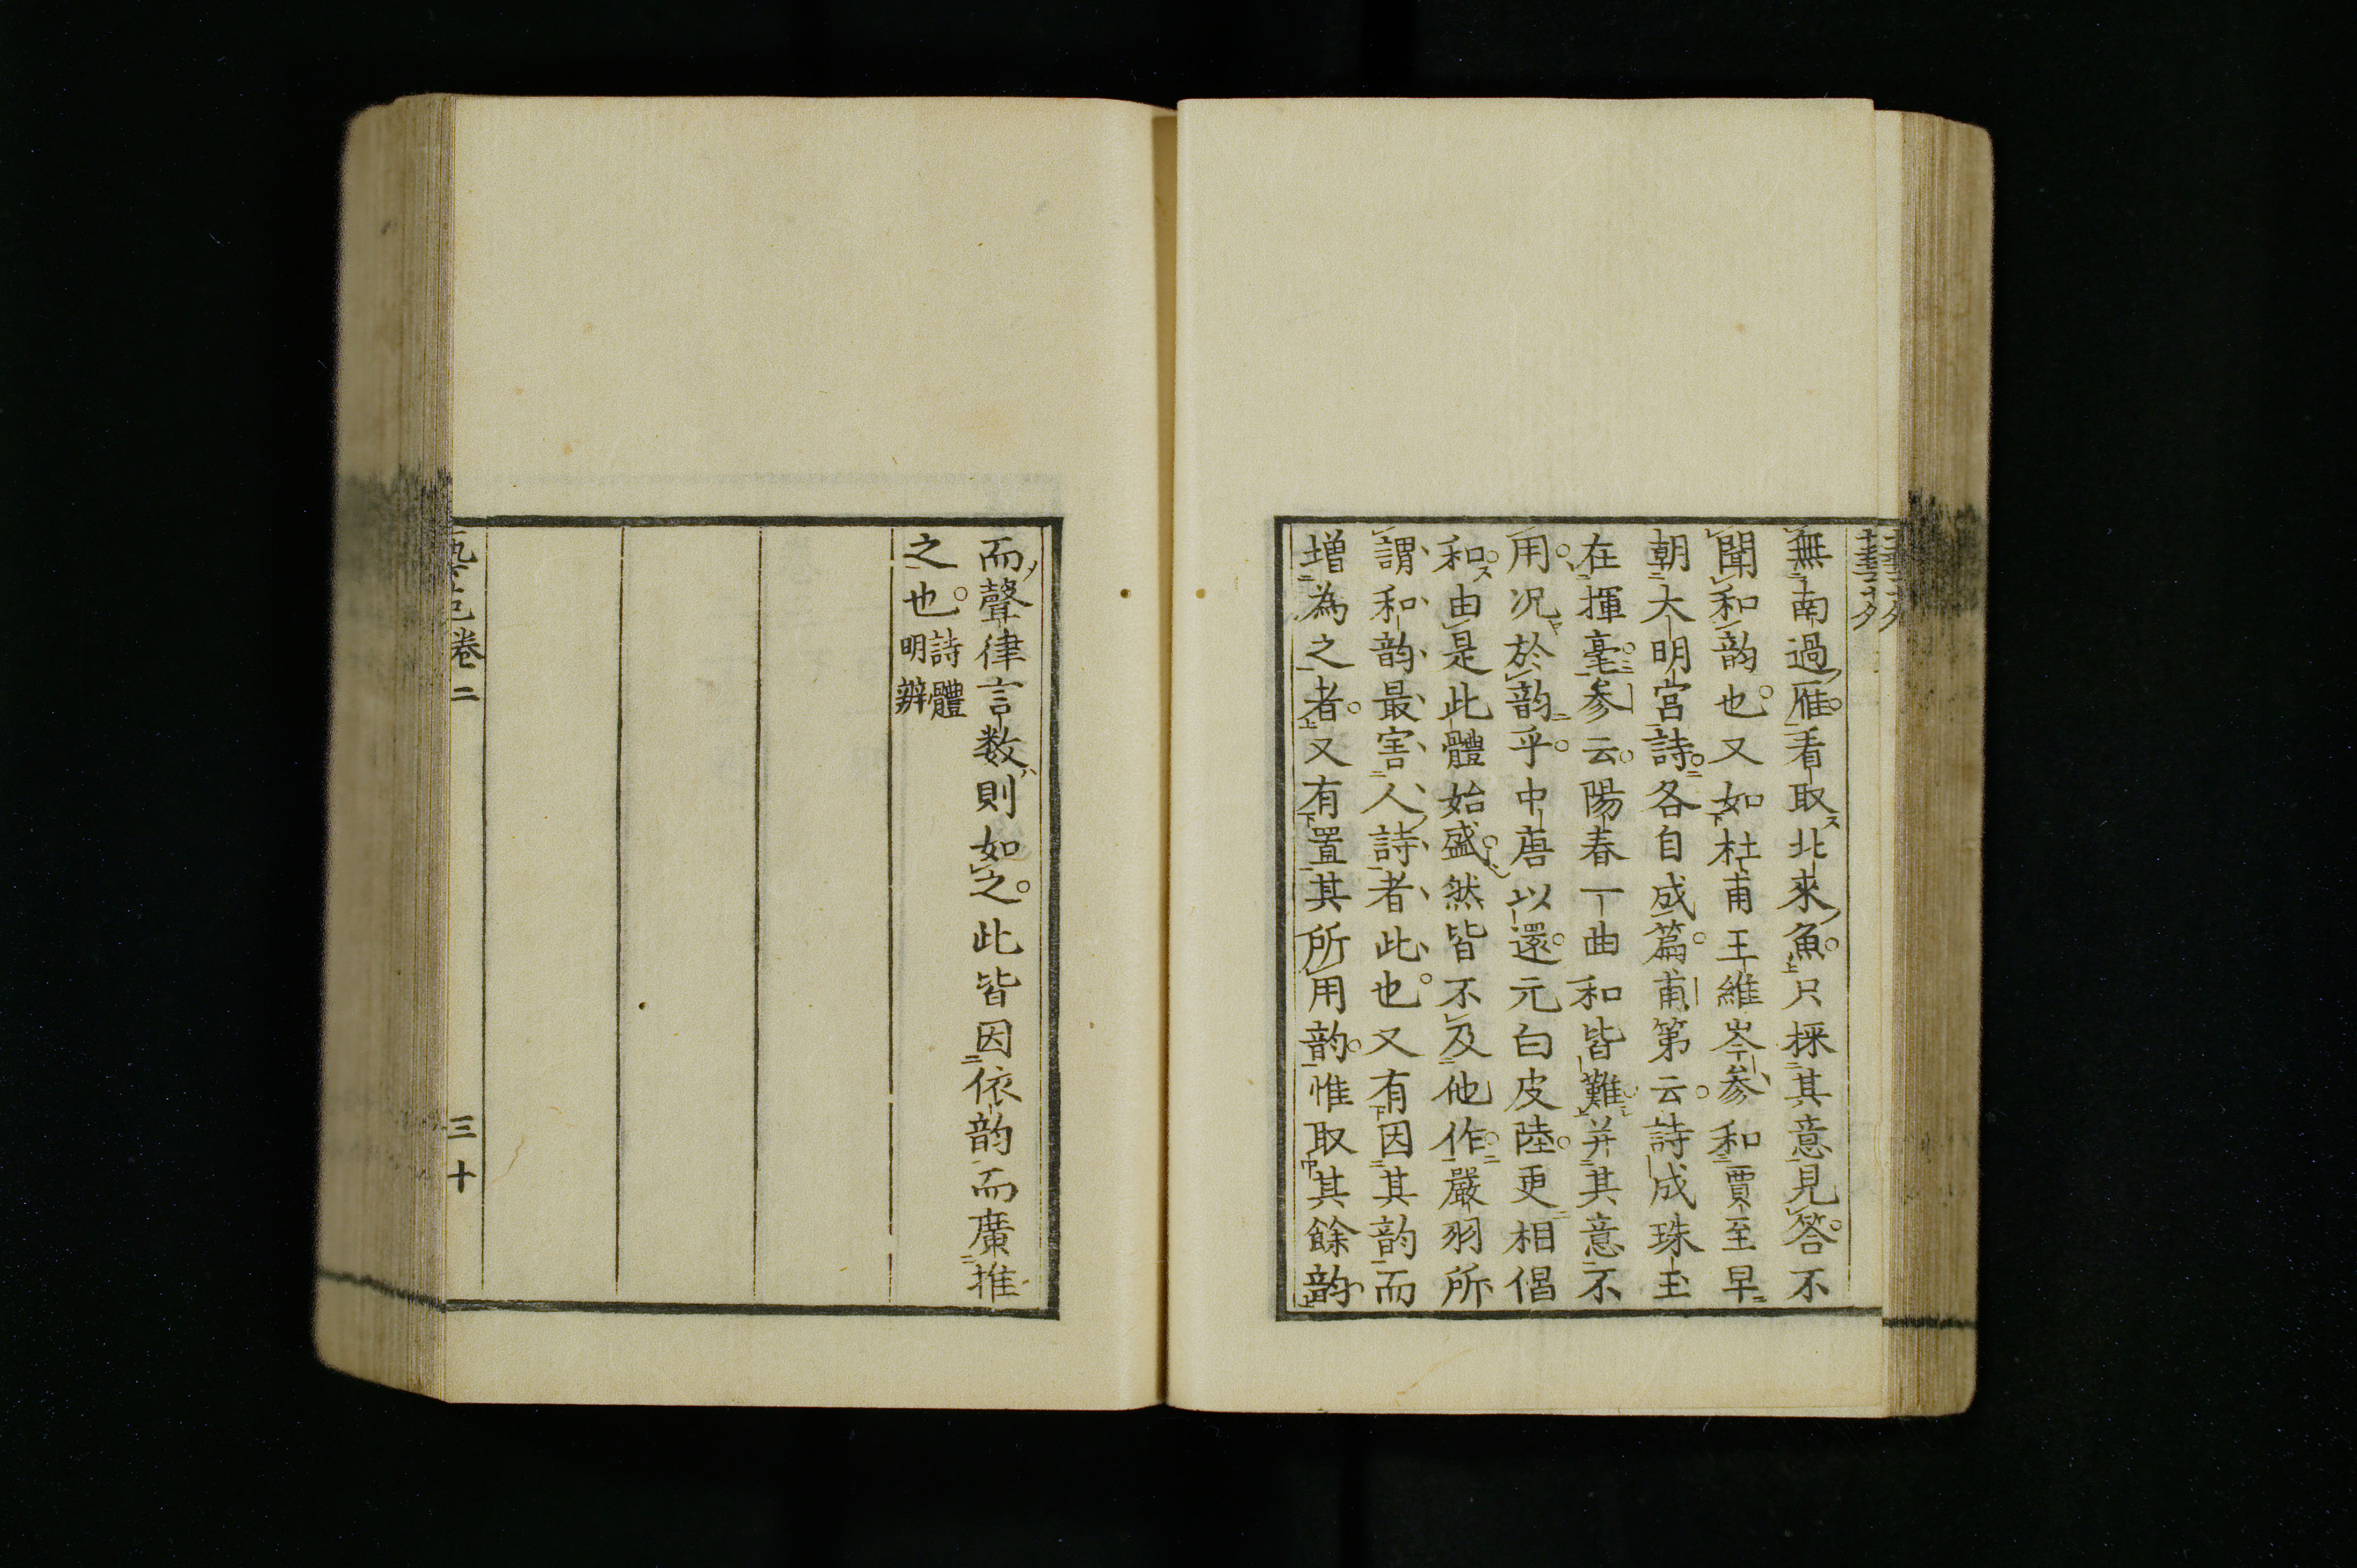 無南過雁看取北來魚只採其意見答不
聞和韵也又如杜甫王維岑参和賈至早
朝大明宮詩各自成篇甫第云詩成珠玉
在揮毫参云陽春一曲和皆難并其意不
用况於韵乎中唐以還元白皮陸更相倡
和由是此體始盛然皆不及他作嚴羽所
謂和韵最害人詩者此也又有因其韵而
增為之者又有置其所用韵惟取其餘韵
而聲律言数則如之此皆因依韵而廣推
之也詩體
明辨
卷二
三十